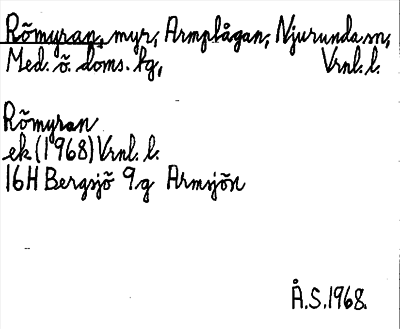 Römyran, myr, Armplågan, Njurunda sn,
Med. ö. doms. fg, Vrnl. l.
Römyran
ek (1968) Vrnl. l.
16H Bergsjö 9g Armsjön
Å.S. 1968.